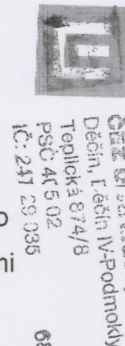 ČEZ
Děčín, Děčín IV-Podmokly
Teplická 874/8
PSČ 405 02
IČ: 247 29 035
ni